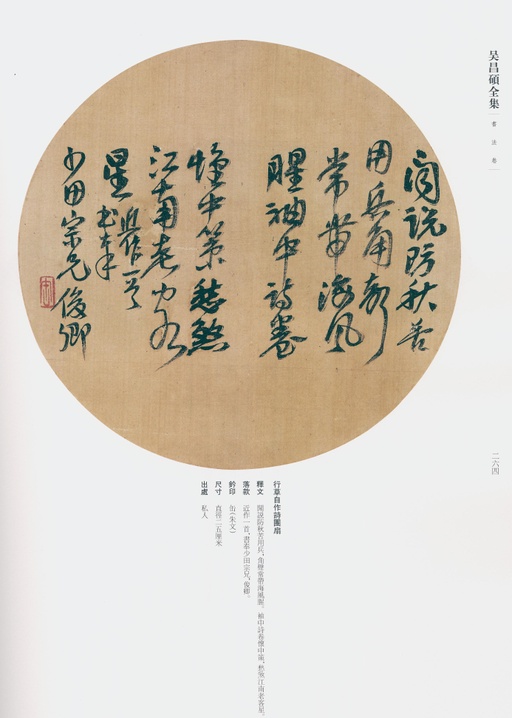 吴昌碩全集
書法卷
二六四
聞說防秋苦
用兵角聲
常帶海風
腥袖中詩卷
懷中策愁煞
江南老客
星近作一首
書奉
少田宗兄俊卿
行草自作詩團扇
釋文 聞說防秋苦用兵,角聲常帶海風腥。袖中詩卷懷中策,愁煞江南老客星。
落款 近作一首,書奉少田宗兄,俊卿。
鈐印 缶(朱文)
尺寸 直徑二五厘米
出處 私人